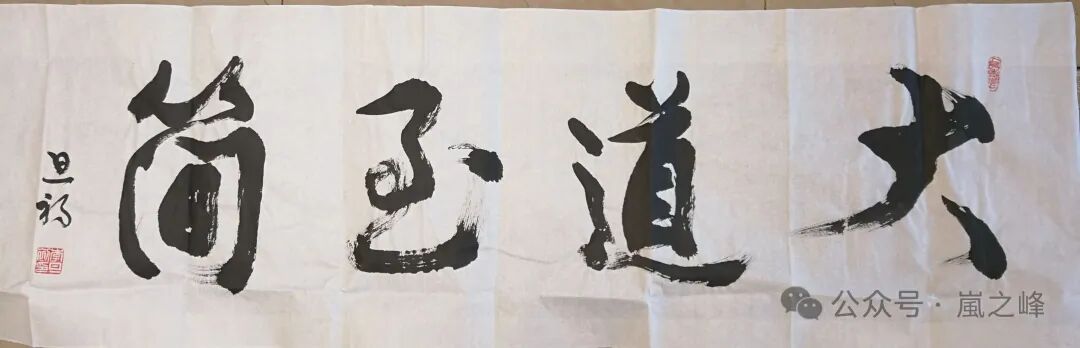 大道至简
旦福
公众号·嵐之峰